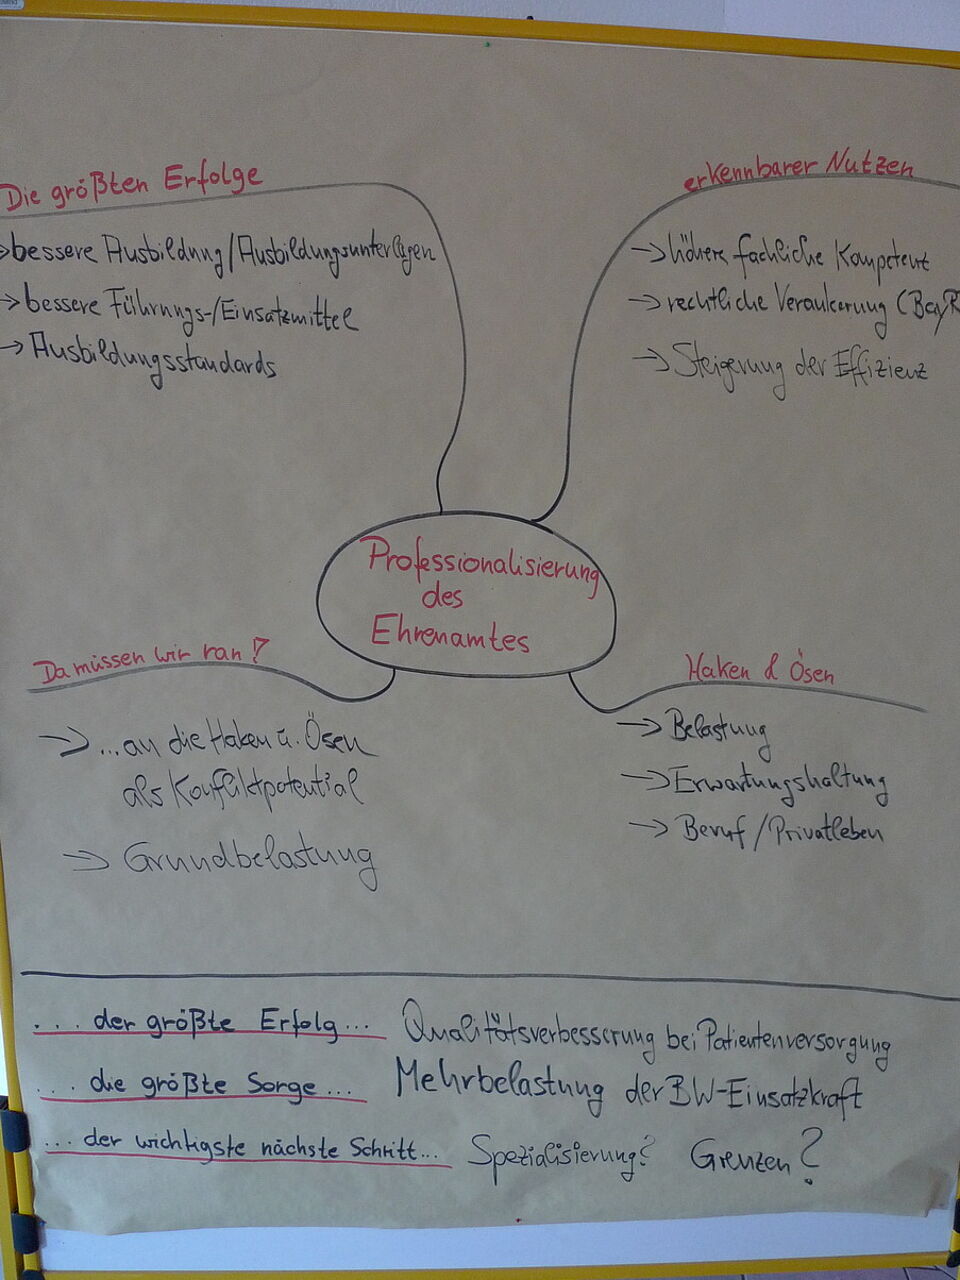 Die größten Erfolge
→ bessere Ausbildung/Ausbildungsunterlagen
→ bessere Führungs-/Einsatzmittel
→ Ausbildungsstandards
erkennbarer Nutzen
→ höhere fachliche Kompetenz
→ rechtliche Verankerung (BayR
→ Steigerung der Effizienz
Professionalisierung
des
Ehrenamtes
Da müssen wir ran?
→ ...an die Haken u. Ösen
als Konfliktpotential
→ Grundbelastung
Haken & Ösen
→ Belastung
→ Erwartungshaltung
→ Beruf/Privatleben
... der größte Erfolg... Qualitätsverbesserung bei Patientenversorgung
... die größte Sorge... Mehrbelastung der BW-Einsatzkraft
... der wichtigste nächste Schritt... Spezialisierung? Grenzen?